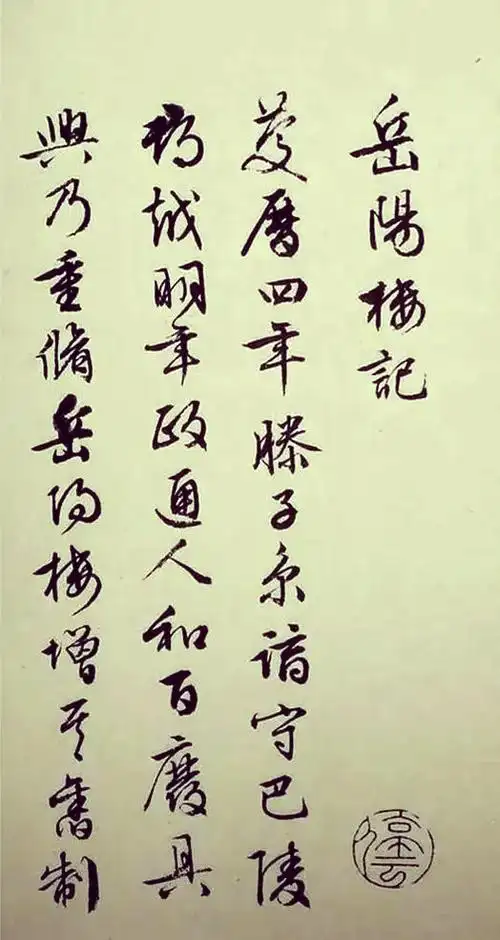 岳陽樓記
慶曆四年滕子京謫守巴陵
郡越明年政通人和百廢具
興乃重脩岳陽樓增其舊制